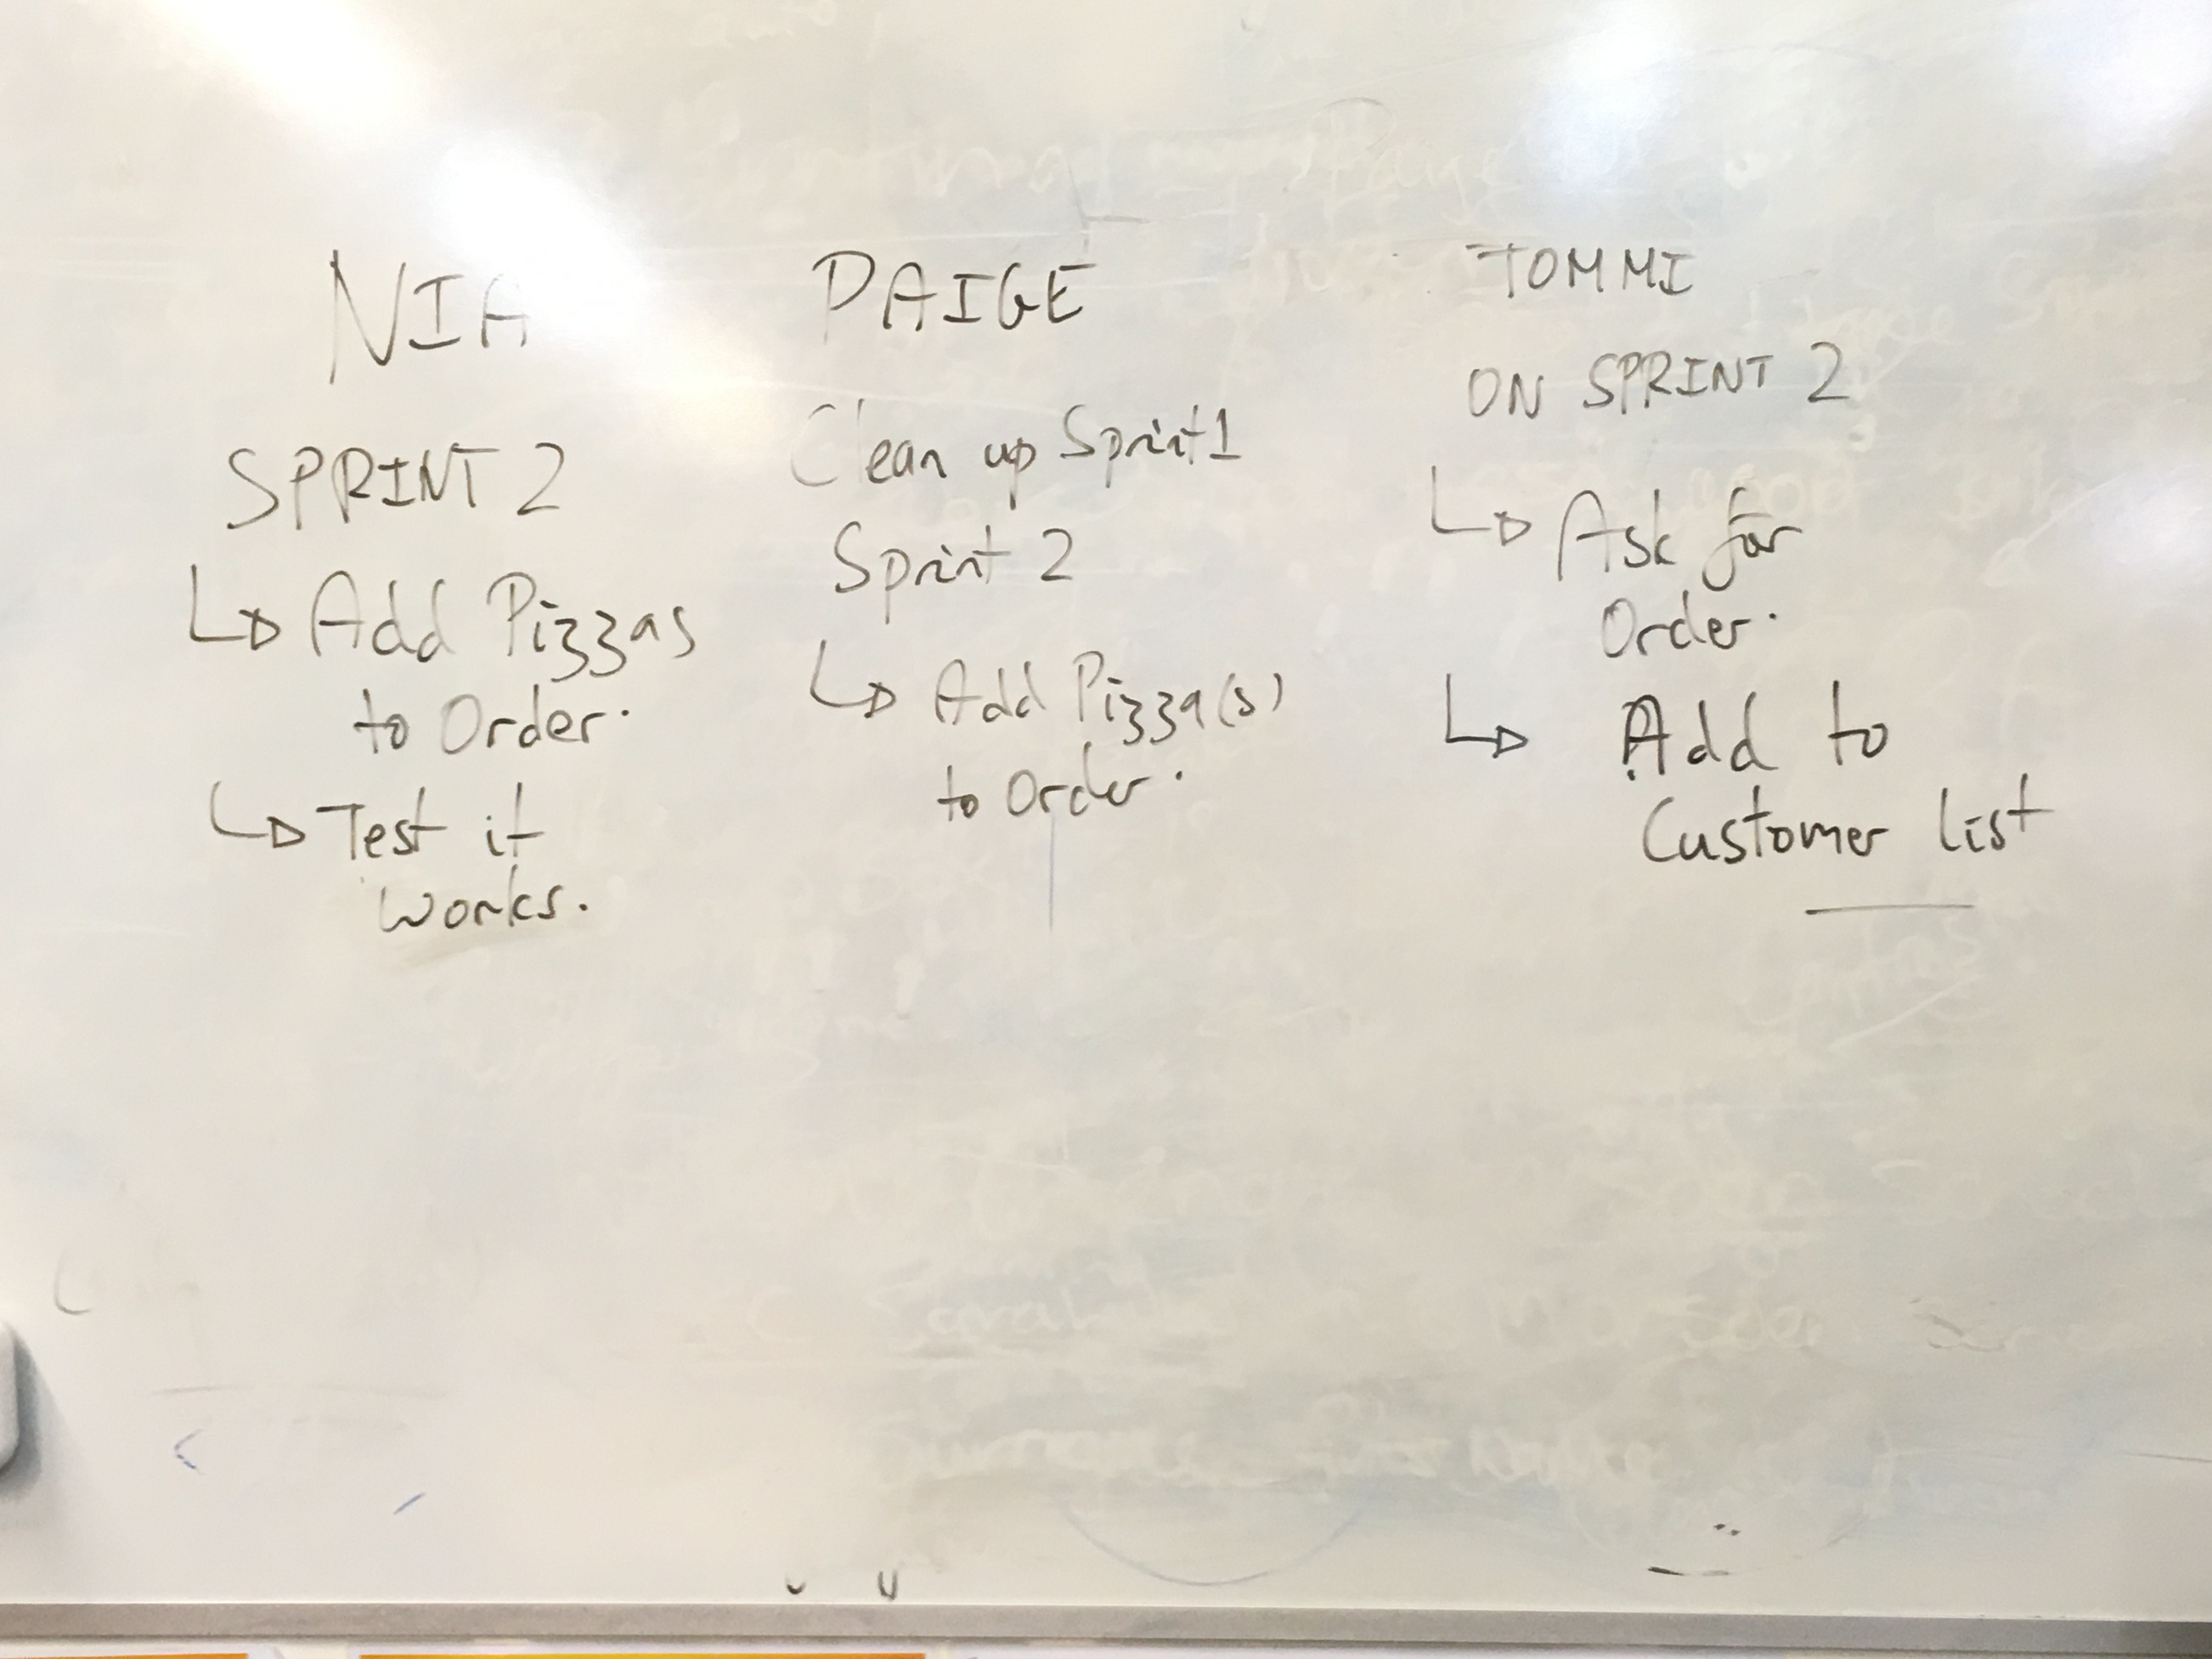 NIA
SPRINT 2
Add Pizzas
to Order.
Test it
works.
PAIGE
Clean up Sprint 1
Sprint 2
Add Pizza(s)
to Order.
TOMMI
ON SPRINT 2
Ask for
Order.
Add to
Customer list